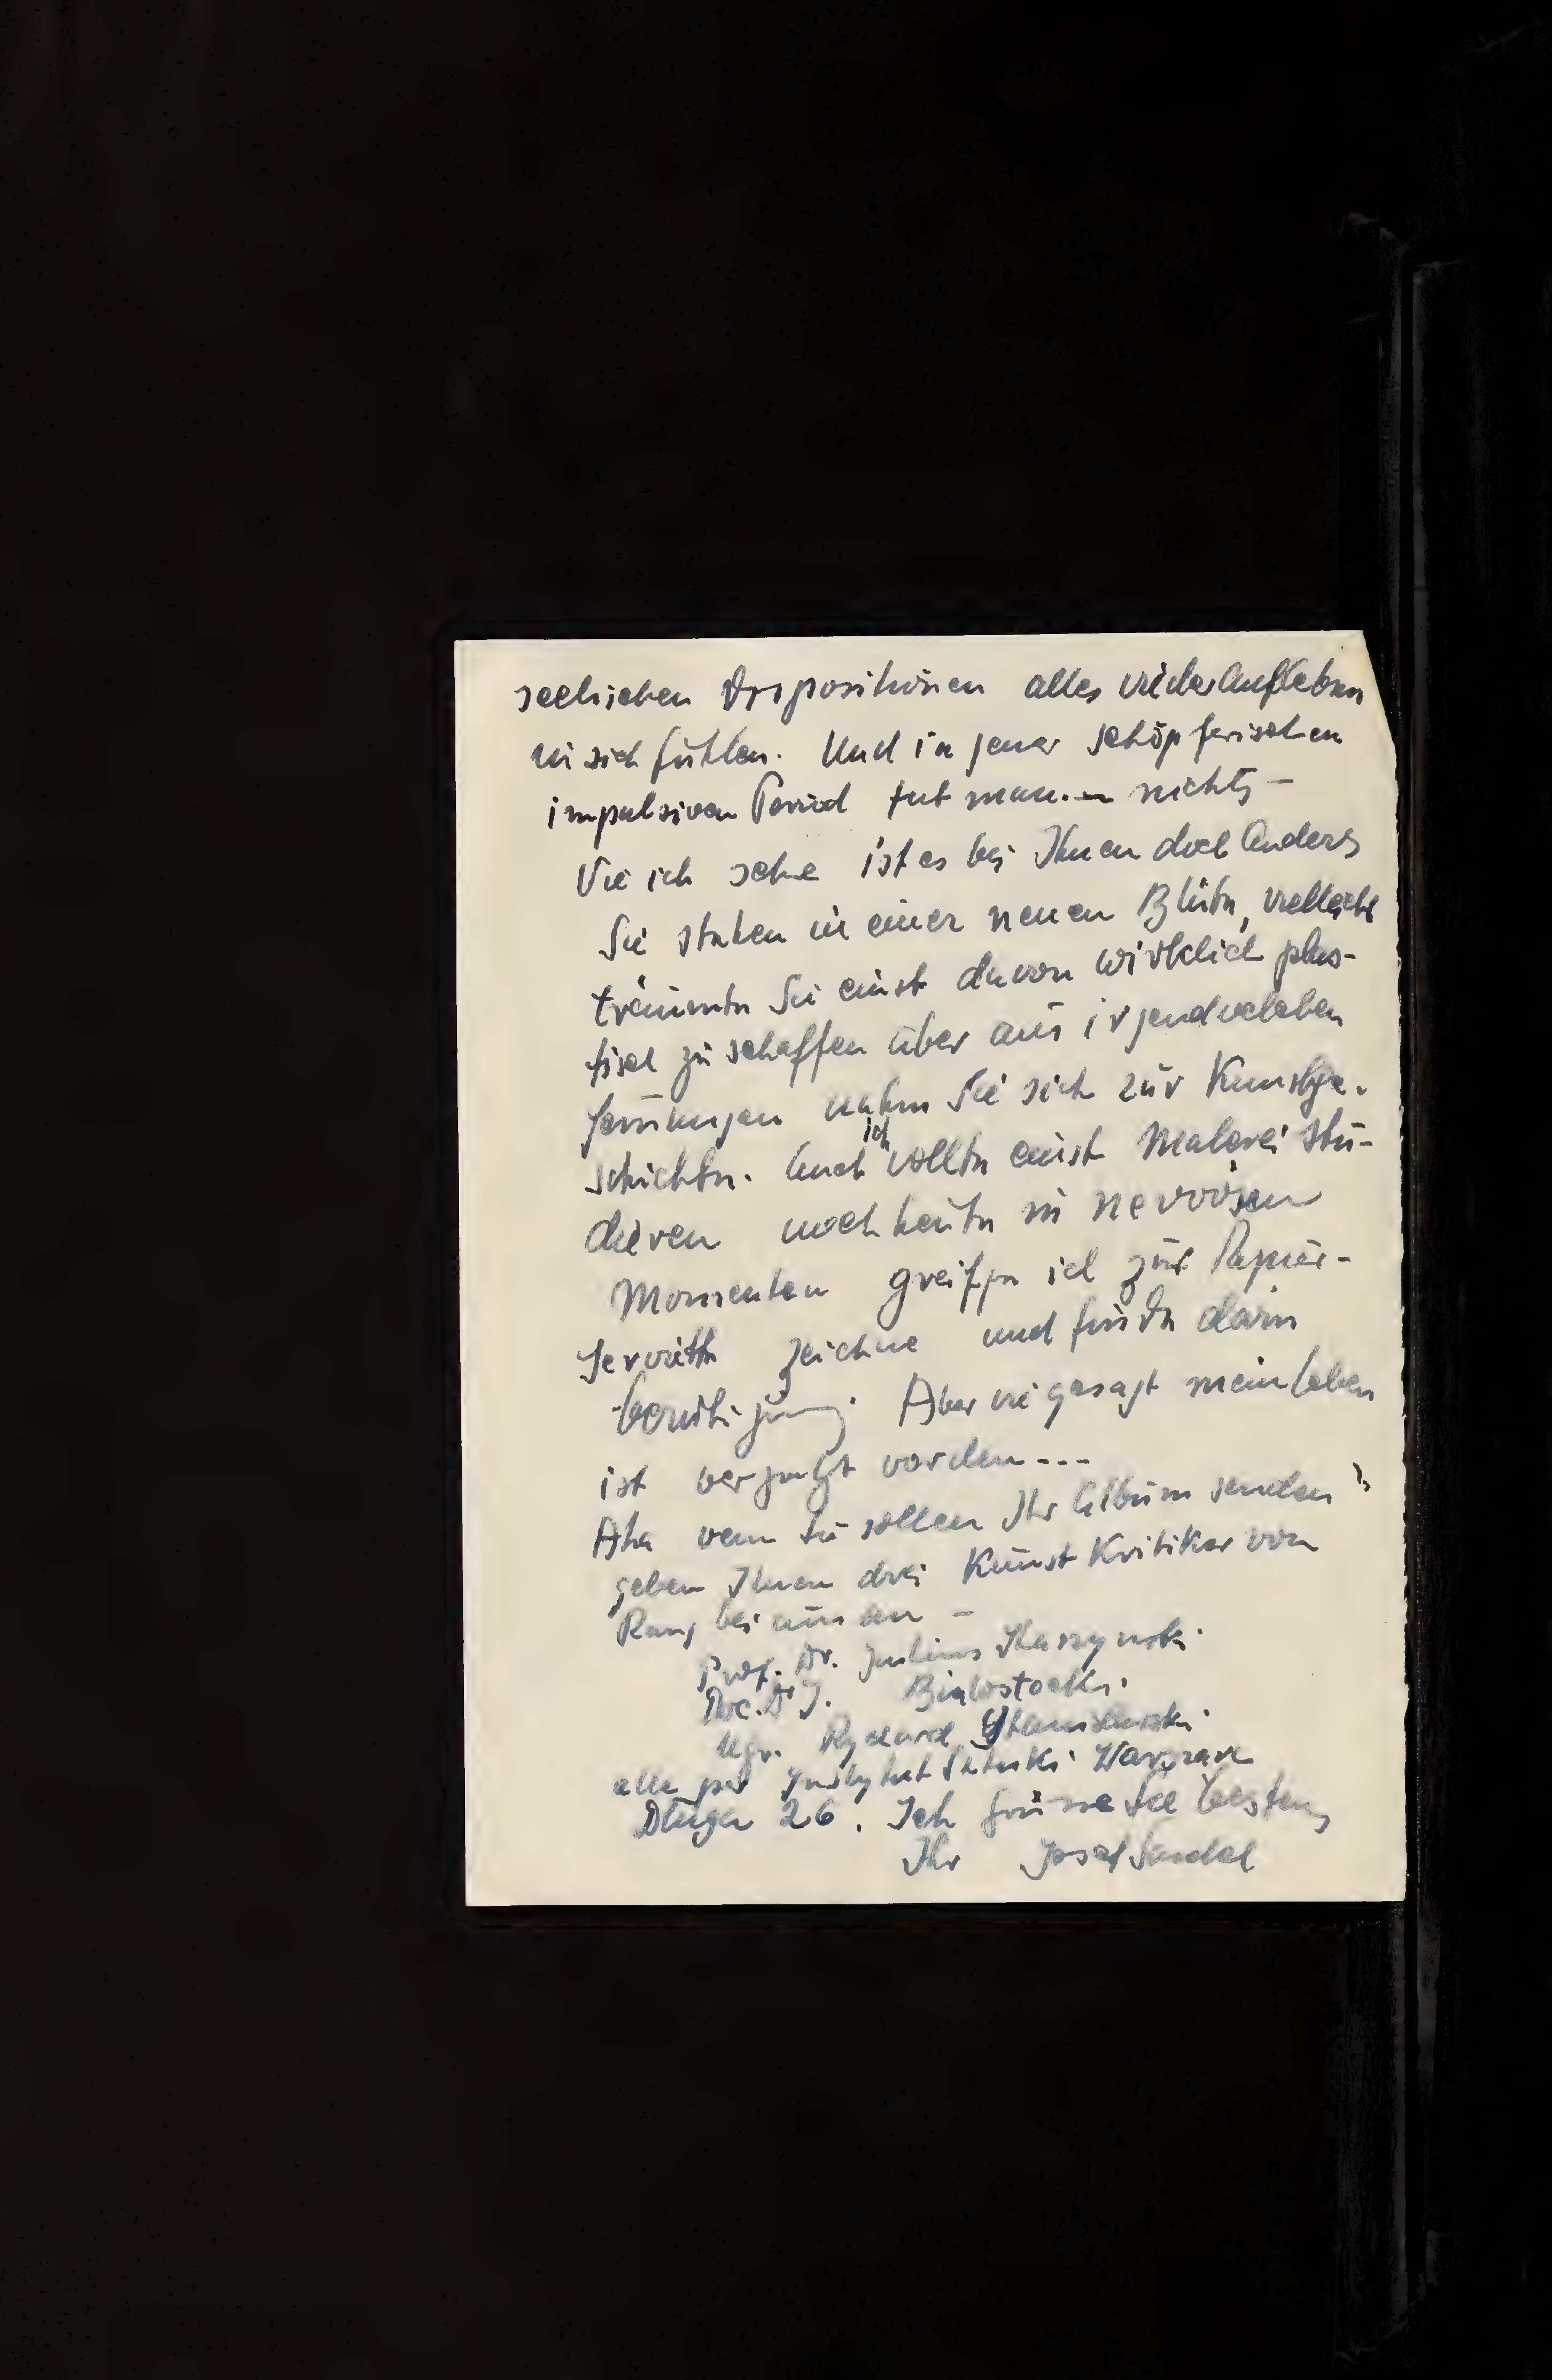 seelischen Dispositionen alles wiederaufleben
in sich fühlen. Und in jener schöpferischen
impulsiven Period tut man.— nichts —
Wie ich sehe ist es bei Ihnen doch anders
Sie stehen in einer neuen Blüte, vielleicht
träumte Sie einst davon wirklich plas-
tisch zu schaffen über aus irgendwelchen
nahm Sie sich zur Kunstge-
schichte. Auch ich wollte einst Malerei stu-
dieren noch heute in nervösen
Momenten greiffe ich zur Papier-
zeichne und finde darin
beruhigung. Aber wie gesagt mein leben
ist worden ---
Aha wem Sie sollen Ihr Album senden
geben Ihnen drei Kunst Kritiker von
Rang bei uns an —
Prof. Dr. Julius Starzynski
Doc. Dr J. Bialostocki.
Mgr. Ryszard Stanislawski
alle per Instytut Sztuki Warszawa
Dluga 26. Ich grüsse Sie bestens
Ihr Josef Sandel